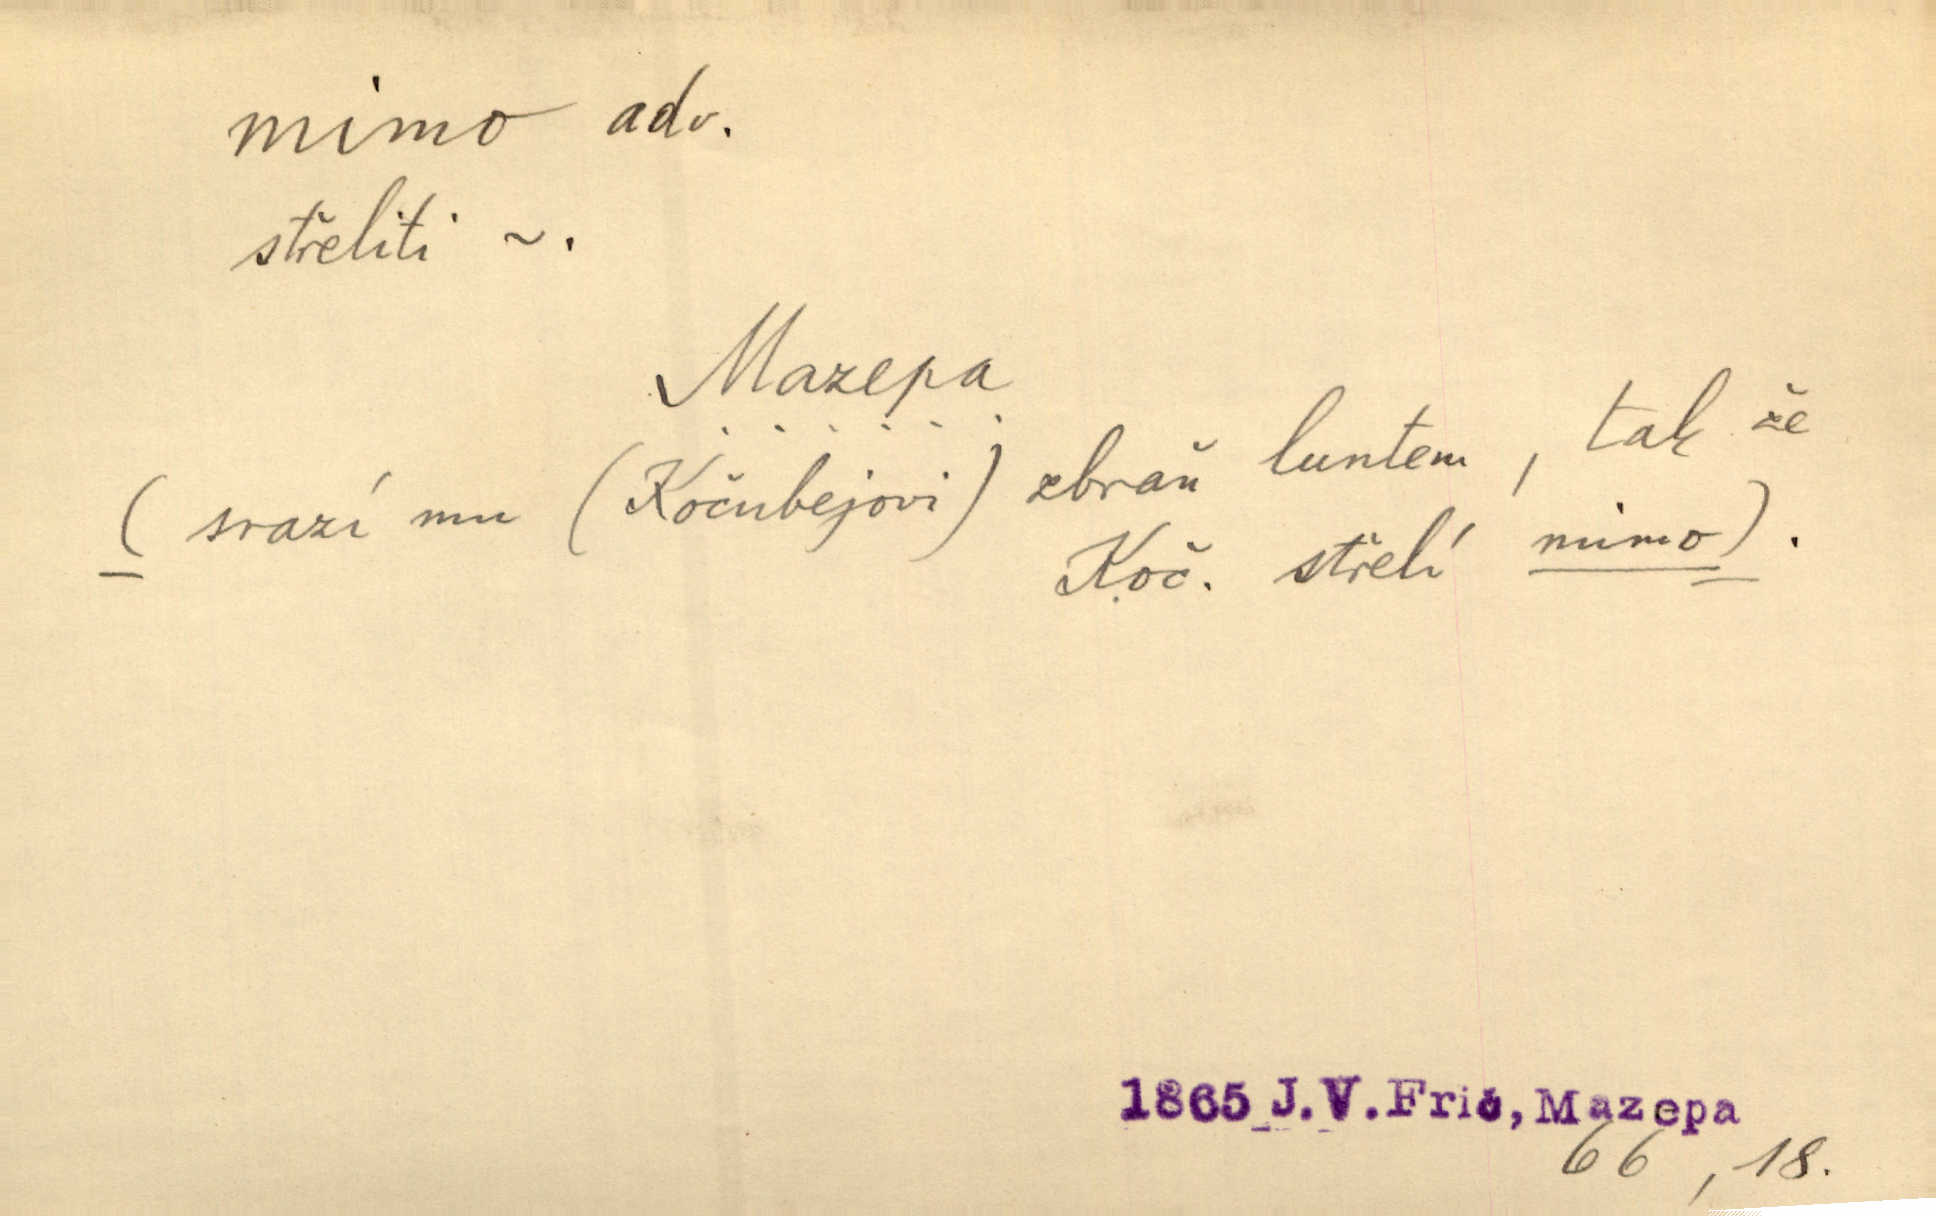 mimo adv.
střeliti ~.
Mazepa
( srazí mu (Kočubejovi) zbraň luntem, tak že
Koč. střelí mimo).
1865 J.V.Frič, Mazepa
66, 18.